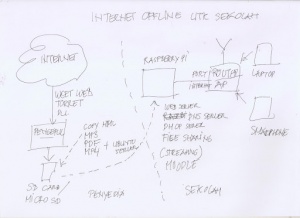 INTERNET OFFLINE UTK SEKOLAH
INTERNET
RASPBERRY PI
PORT
ROUTER
AP
LAPTOP
SMARTPHONE
WGET
TORRENT
DLL
COPY
MP3
PDF
MP4
UBUNTU
SD CARD
MICRO SD
WEB SERVER
DNS SERVER
DHCP SERVER
FILE SHARING
(STREAMING)
MOODLE
PENYEDIA
SEKOLAH